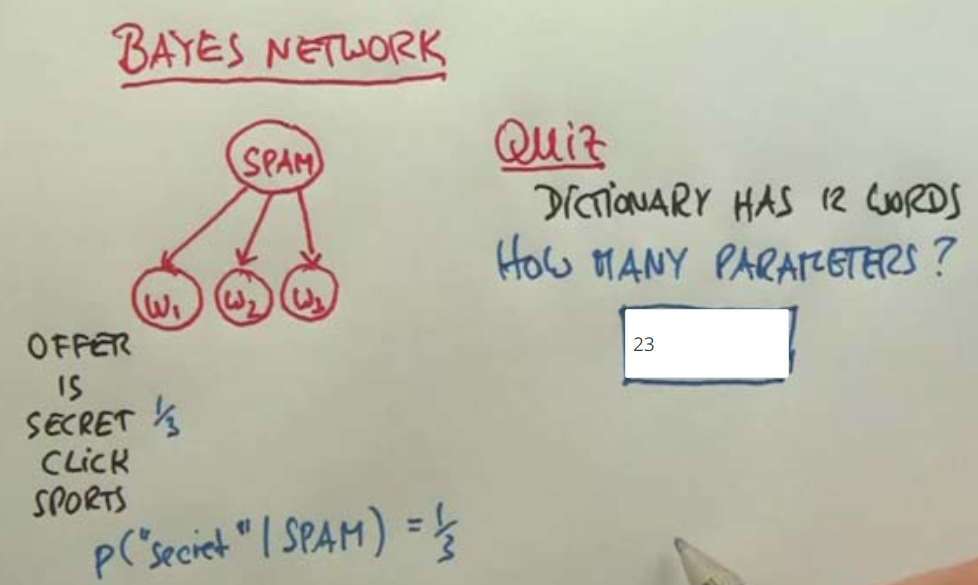 BAYES NETWORK
SPAM
W1 W2 W3
OFFER
IS
SECRET 1/3
CLICK
SPORTS
P("secret" | SPAM) = 1/3
Quiz
DICTIONARY HAS 12 WORDS
HOW MANY PARAMETERS?
23